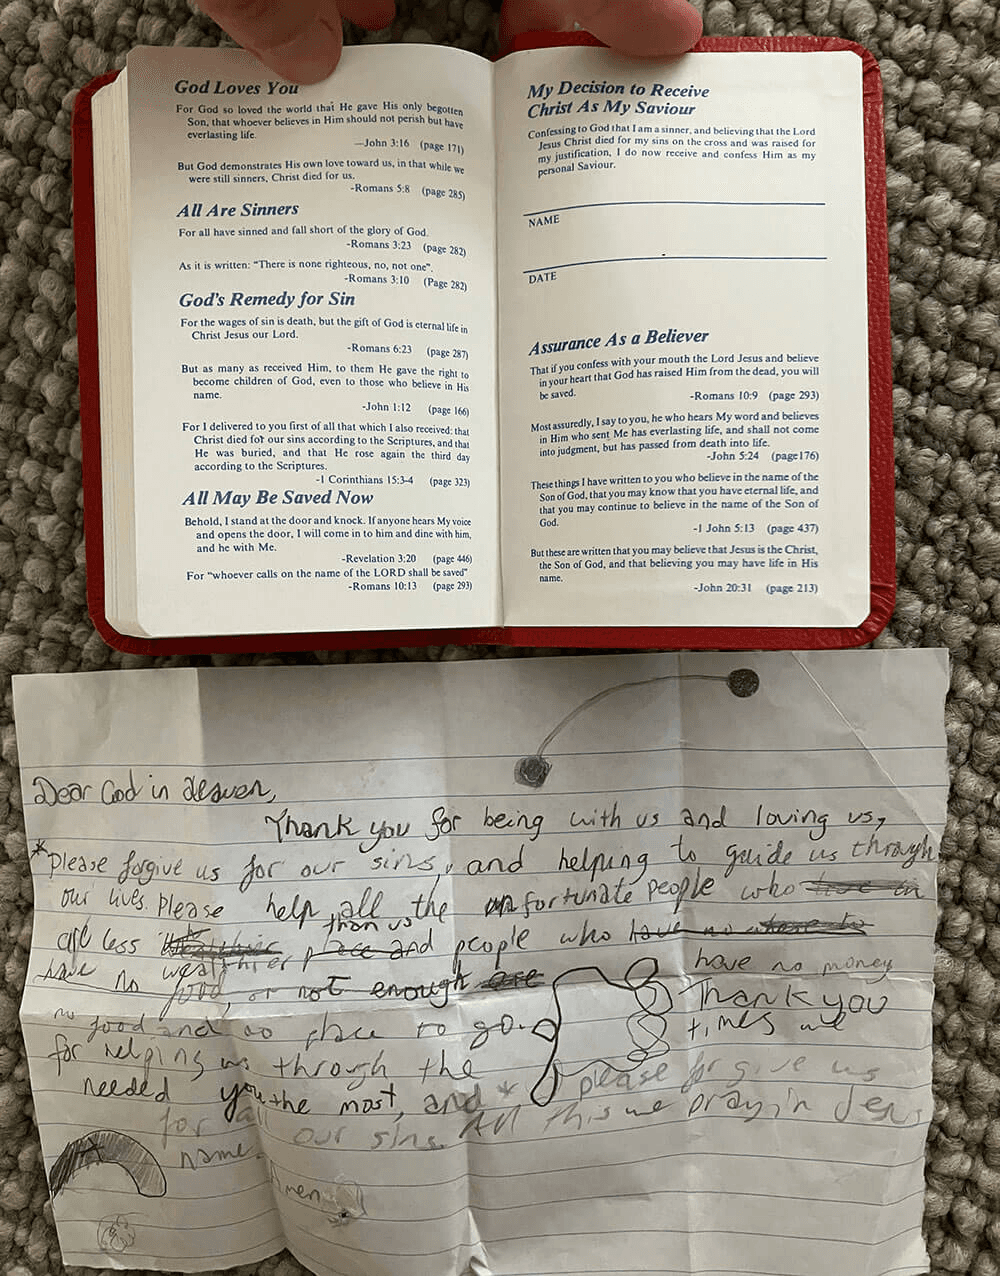 God Loves You
For God so loved the world that He gave His only begotten
Son, that whoever believes in Him should not perish but have
everlasting life.
—John 3:16 (page 171)
But God demonstrates His own love toward us, in that while we
were still sinners, Christ died for us.
-Romans 5:8 (page 285)
All Are Sinners
For all have sinned and fall short of the glory of God.
-Romans 3:23 (page 282)
As it is written: “There is none righteous, no, not one”.
-Romans 3:10 (Page 282)
God's Remedy for Sin
For the wages of sin is death, but the gift of God is eternal life in
Christ Jesus our Lord.
-Romans 6:23 (page 287)
But as many as received Him, to them He gave the right to
become children of God, even to those who believe in His
name.
-John 1:12 (page 166)
For I delivered to you first of all that which I also received: that
Christ died for our sins according to the Scriptures, and that
He was buried, and that He rose again the third day
according to the Scriptures.
-1 Corinthians 15:3-4 (page 323)
All May Be Saved Now
Behold, I stand at the door and knock. If anyone hears My voice
and opens the door, I will come in to him and dine with him,
and he with Me.
-Revelation 3:20 (page 446)
For “whoever calls on the name of the LORD shall be saved”
-Romans 10:13 (page 293)
My Decision to Receive
Christ As My Saviour
Confessing to God that I am a sinner, and believing that the Lord
Jesus Christ died for my sins on the cross and was raised for
my justification, I do now receive and confess Him as my
personal Saviour.
NAME
DATE
Assurance As a Believer
That if you confess with your mouth the Lord Jesus and believe
in your heart that God has raised Him from the dead, you will
be saved.
-Romans 10:9 (page 293)
Most assuredly, I say to you, he who hears My word and believes
in Him who sent Me has everlasting life, and shall not come
into judgment, but has passed from death into life.
-John 5:24 (page176)
These things I have written to you who believe in the name of the
Son of God, that you may know that you have eternal life, and
that you may continue to believe in the name of the Son of
God.
-1 John 5:13 (page 437)
But these are written that you may believe that Jesus is the Christ,
the Son of God, and that believing you may have life in His
name.
-John 20:31 (page 213)
Dear God in Heaven,
Thank you for being with us and loving us,
*Please forgive us for our sins, and helping to guide us through
our lives. Please help all the unfortunate people who live in
are less than us place and people who have no where to
have no wealthier food, or not enough are have no money
no food and no place to go. Thank you
for helping us through the times we
needed you the most, and * please forgive us
for all our sins. All this we pray in Jesus
name.
Amen